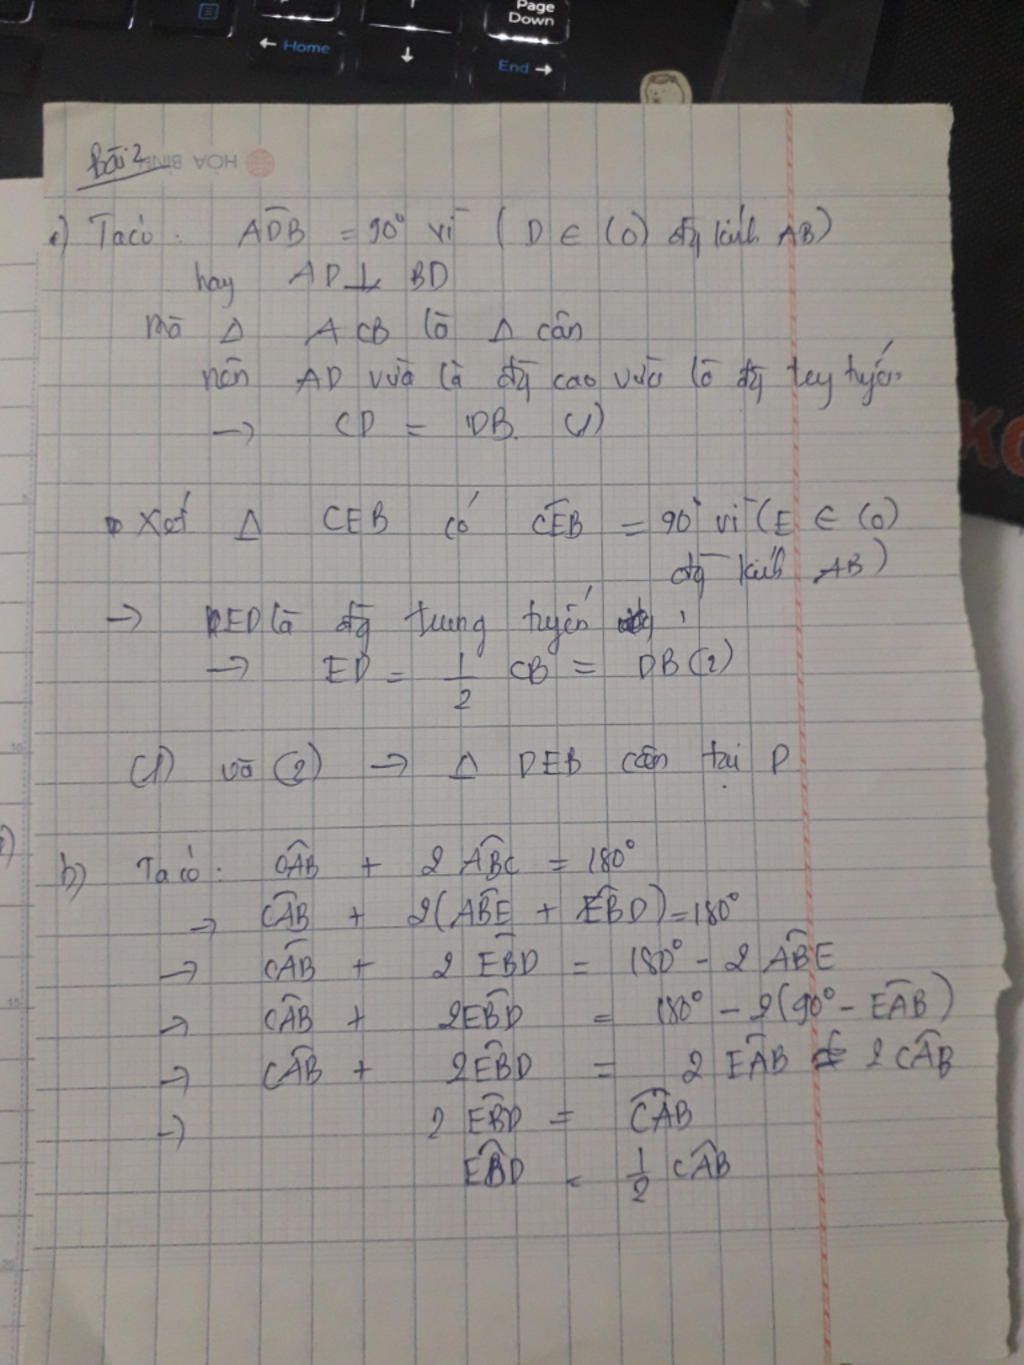 Page
Down
← Home
↓
End →
Bài 2
HÒA BÌNH
a) Ta có : ADB = 90° vì ( D ∈ (O) đg kính AB)
hay AD ⊥ BD
mà Δ ACB là Δ cân
nên AD vừa là đg cao vừa là đg tuyến
→ CD = DB. (1)
Xét Δ CEB có CEB = 90° vì (E ∈ (O)
đg kính AB)
→ ED là đg trung tuyến
→ ED = 1/2 CB = DB (2)
(1) và (2) → Δ DEB cân tại D
b) Ta có : CAB + 2 ABC = 180°
→ CAB + 2(ABE + EBD) = 180°
→ CAB + 2 EBD = 180° - 2 ABE
→ CAB + 2EBD = 180° - 2(90° - EAB)
→ CAB + 2EBD = 2 EAB = 2 CAB
→ 2 EBD = CAB
EBD = 1/2 CAB
KO